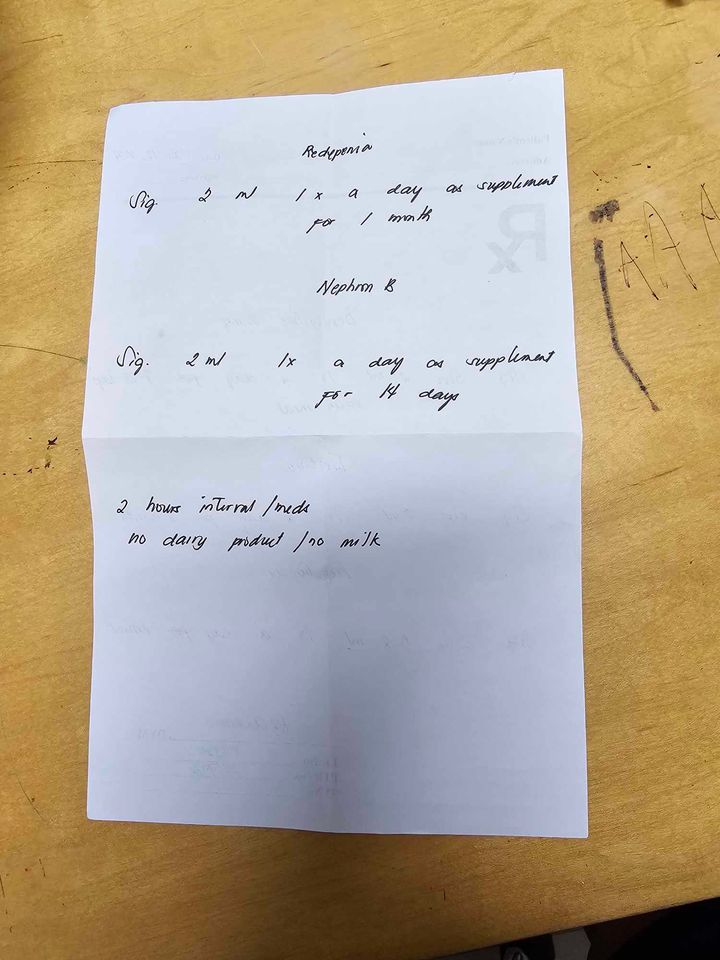 Redyponia
Sig. 2 ml 1 x a day as supplement
for 1 month
Nephron B
Sig. 2 ml 1x a day as supplement
for 14 days
2 hours interval /meds
no dairy product /no milk
Rx
AAA